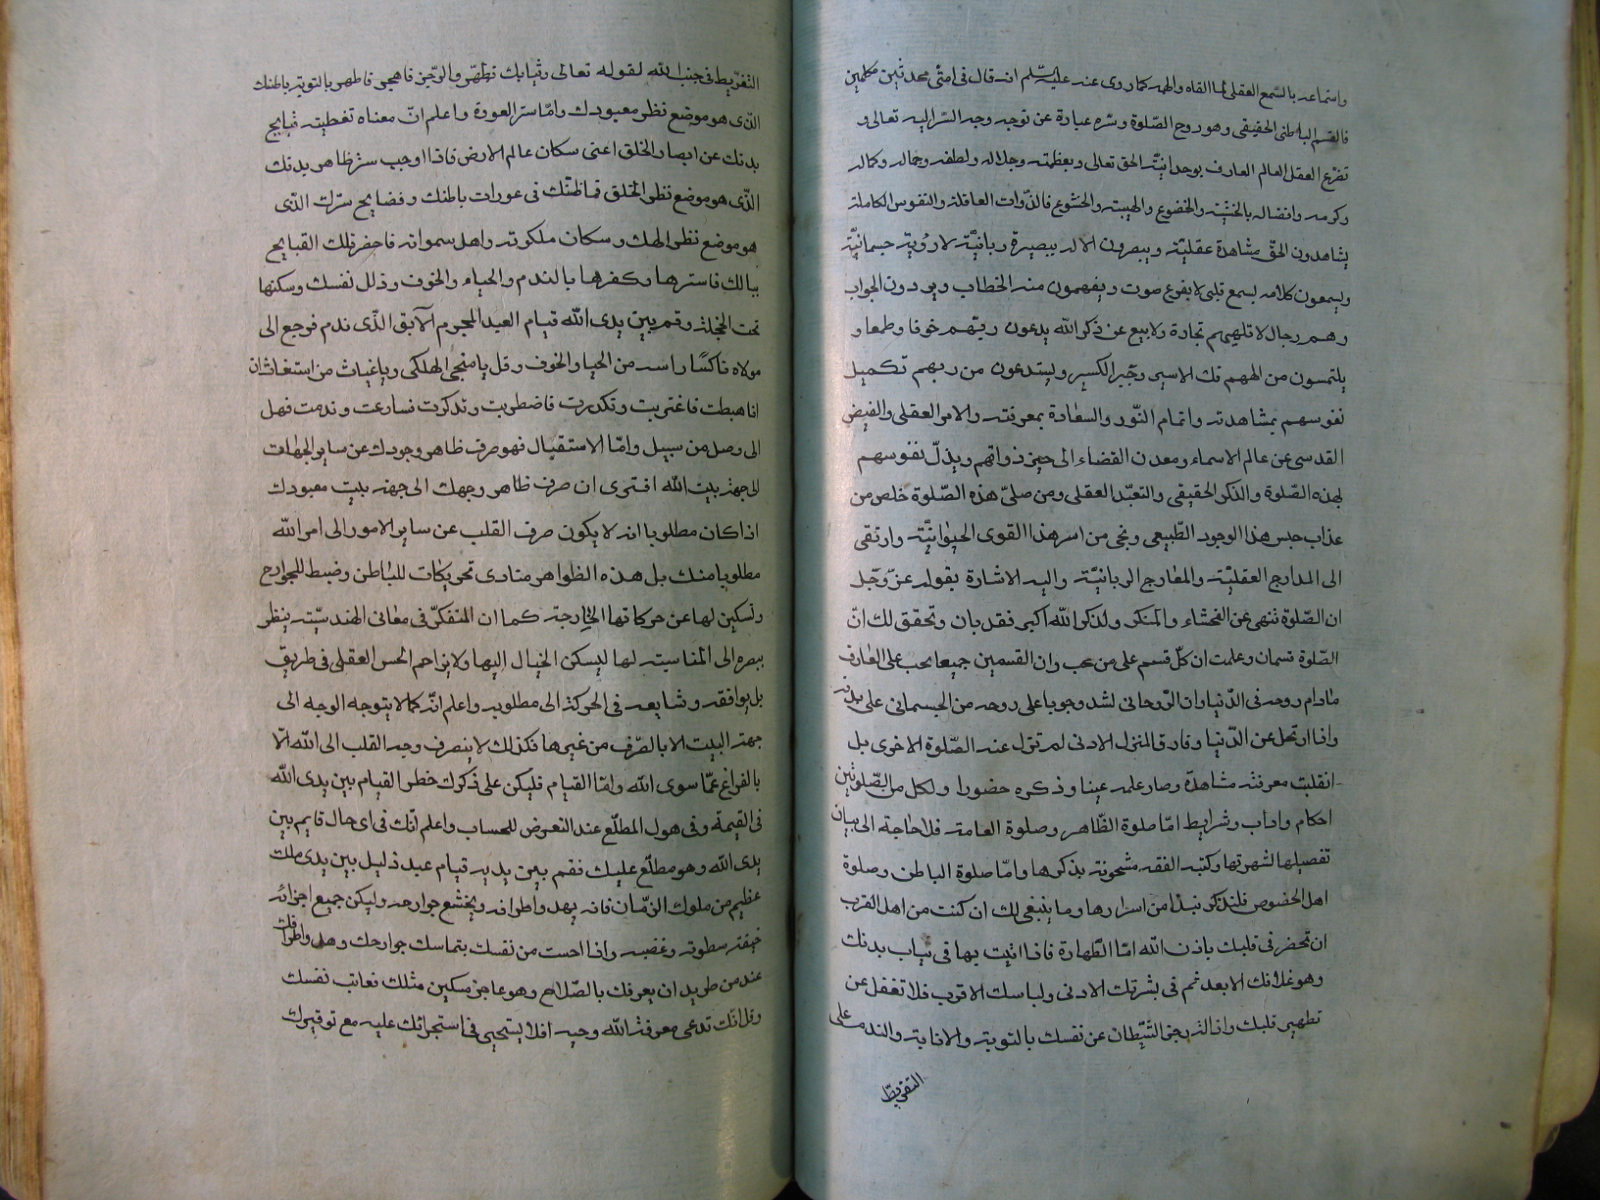 واستماعه بالسّمع العقلى لما القاه والهمه كما روى عنه عليه السّلم انه قال فى امتى محدثين مكلمين
فالقسم الباطنى الحقيقى وهو روح الصّلوة وسّره عبارة عن توجه وجه السّر اليه تعالى و
تضرع العقل العالم العارف بوحدانيّة الحق تعالى وبعظمته وجلاله ولطفه وجماله وكماله
وكرمه وافضاله بالخشية والخضوع والهيبته والخشوع فالذّوات العاقلة والنفوس الكاملة
يشاهدون الحقّ مشاهدة عقليّة ويبصرون الاله ببصيرة ربانيّة لا رؤية جسمانيّة
ويسمعون كلامه بسمع قلبى لا بقرع صوت ويفهمون منه الخطاب ويردون الجواب
وهم رجال لا تلهيهم تجارة ولا بيع عن ذكر الله يدعون ربّهم خوفا وطمعا و
يلتمسون من الههم فك الاسير وجبر الكسير ويستدعون من ربهم تكميل
نفوسهم بمشاهدته واتمام النّور والسعادة بمعرفته والامر العقلى والفيض
القدسى عن عالم الاسماء ومعدن القضاء الى حيز ذواتهم وبذلّ نفوسهم
بهذه الصّلوة والذكر الحقيقى والتعبّد العقلى ومن صلىّ هذه الصّلوة خلص من
عذاب حبس هذا الوجود الطّبيعى ونجى من اسر هذا القوى الحيوانيّة وارتقى
الى المدارج العقليّة والمعارج الربانيّة واليه الاشارة بقوله عزّ وجّل
ان الصّلوة تنهى عن الفحشاء والمنكر ولذكر الله اكبر فقد بان وتحقق لك انّ
الصّلوة قسمان وعلمت ان كلّ قسم على من يجب وان القسمين جميعا يجب على العارف
مادام روحه فى الدّنيا وان الرّوحانى اشد وجوبا على روحه من الجسمانى على بدنه
واذا ارتحل عن الدّنيا وفارق المنزل الادنى لم تزل عنه الصّلوة الاخرى بل
انقلبت معرفته مشاهدة وصار علمه عينا وذكره حضورا ولكل من الصّلوتين
احكام واداب وشرايط امّا صلوة الظّاهر وصلوة العامة فلا حاجة الى بيان
تفصيلها لشهرتها وكتب الفقه مشحونة بذكرها وامّا صلوة الباطن وصلوة
اهل الخصوص فلنذكر نبذا من اسرارها وما ينبغى لك ان كنت من اهل القرب
ان تحضر فى قلبك باذن الله امّا الطّهارة فاذا اتيت بها فى ثياب بدنك
وهو غلافك الابعد ثم فى بشرتك الادنى ولباسك الاقرب فلا تغفل عن
تطهير قلبك وازالة رجز الشّيطان عن نفسك بالتوبة والانابة والندم على
التفريط
التفريط فى جنب الله لقوله تعالى وثيابك فطهّر والرّجز فاهجر فاطهر بالتوبة باطنك
الذّى هو موضع نظر معبودك وامّا ستر العورة واعلم انّ معناه تغطية قبايح
بدنك عن ابصار الخلق اعنى سكان عالم الارض فاذا اوجب ستر ظاهر بدنك
الذّى هو موضع نظر الخلق فما ظنّك فى عورات باطنك وفضايح سرّك الذّى
هو موضع نظر الهك وسكان ملكوته واهل سمواته فاحضر تلك القبايح
ببالك فاسترها وكفرها بالندم والحياء والخوف وذلل نفسك وسكنها
تحت الخجلة وقم بين يدى الله قيام العبد المجرم الآبق الذّى ندم فرجع الى
مولاه ناكسًا راسه من الحيا والخوف وقل يا منجى الهلكى ويا غياث من استغاث ان
انا هبطت فاغتربت وتكدرت فاضطربت وتذكرت فسارعت وندمت فهل
الى وصل من سبيل وامّا الاستقبال فهو صرف ظاهر وجودك عن ساير الجهات
الى جهة بيت الله افترى ان صرف ظاهر وجهك الى جهة بيت معبودك
اذا كان مطلوبا انه لا يكون صرف القلب عن ساير الامور الى امر الله
مطلوبا منك بل هذه الظواهر منادى تحريكات للباطن وضبط للجوارح
وتسكين لها عن حركاتها الخارجة كما ان المتفكرّ فى معانى الهندسيّة ينظر
ببصره الى المناسبة لها ليسكن الخيال اليها ولا يزاحم الحس العقلى فى طريق
بل يوافقه وشايعه فى الحركة الى مطلوبه واعلم انّه كما لا يتوجه الوجه الى
جهة البيت الا بالصّرف من غيرها فكذلك لا ينصرف وجه القلب الى الله الّا
بالفراغ عمّا سوى الله وامّا القيام فليكن على ذكرك خطر القيام بين يدى الله
فى القيمة وفى هول المطلّع عند التعرض للحساب واعلم انّك فى اى حال قايم بين
يدى الله وهو مطلّع عليك فقم بين يديه قيام عبد ذليل بين يدى ملك
عظيم من ملوك الزّمان فانه يهد واطرافه ويخشع جوارحه وليكن جميع اجزائه
خيفة سطوته وغضبه واذا احست من نفسك بتماسك جوارحك وهدو اطرافك
عند من طريد ان يعرفك بالصّلاح وهو عاجز مسكين مثلك فعاتب نفسك
وقل انّك تدعى معرفة الله وحبه افلا يستحيى فى استجرائك عليه مع توقيرك